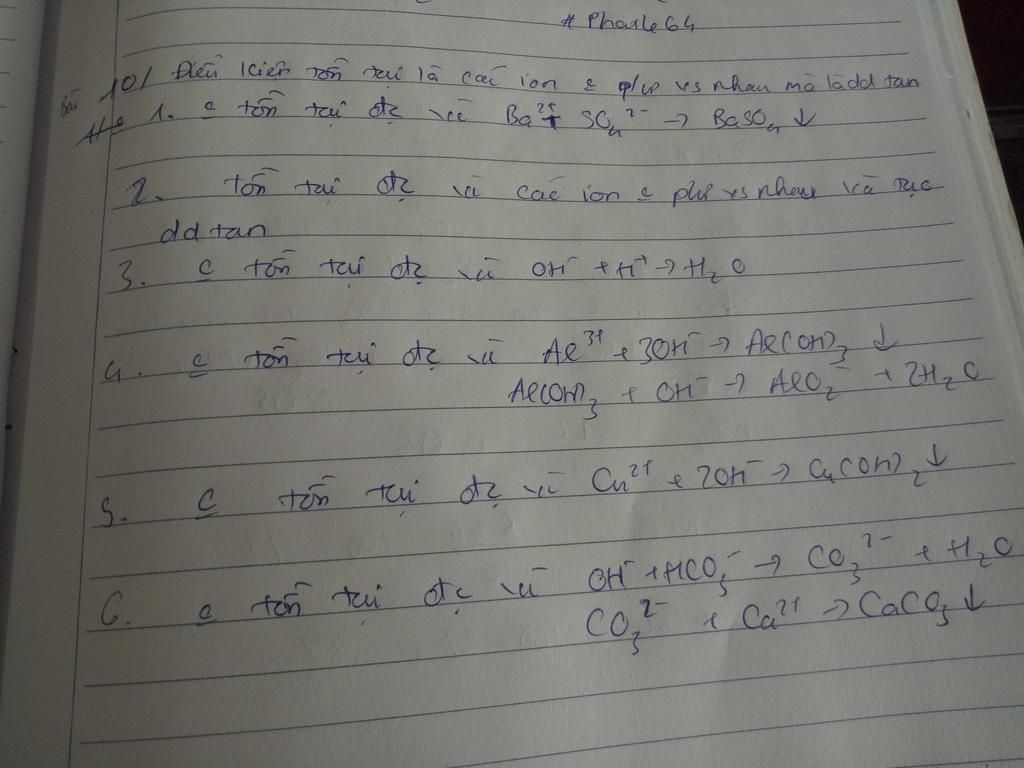 # Pharle64
Bài 10/ Điều kiện tồn tại là các ion c̲ pứ vs nhau mà là dd tan
1. c̲ tồn tại đc vì Ba²⁺ + SO₄²⁻ → BaSO₄ ↓
2. tồn tại đc vì các ion c̲ pứ vs nhau và
dd tan
3. c̲ tồn tại đc vì OH⁻ + H⁺ → H₂O
4. c̲ tồn tại đc vì Al³⁺ + 3OH⁻ → Al(OH)₃ ↓
Al(OH)₃ + OH⁻ → AlO₂⁻ + 2H₂O
5. c̲ tồn tại đc vì Cu²⁺ + 2OH⁻ → Cu(OH)₂ ↓
6. c̲ tồn tại đc vì OH⁻ + HCO₃⁻ → CO₃²⁻ + H₂O
CO₃²⁻ + Ca²⁺ → CaCO₃ ↓